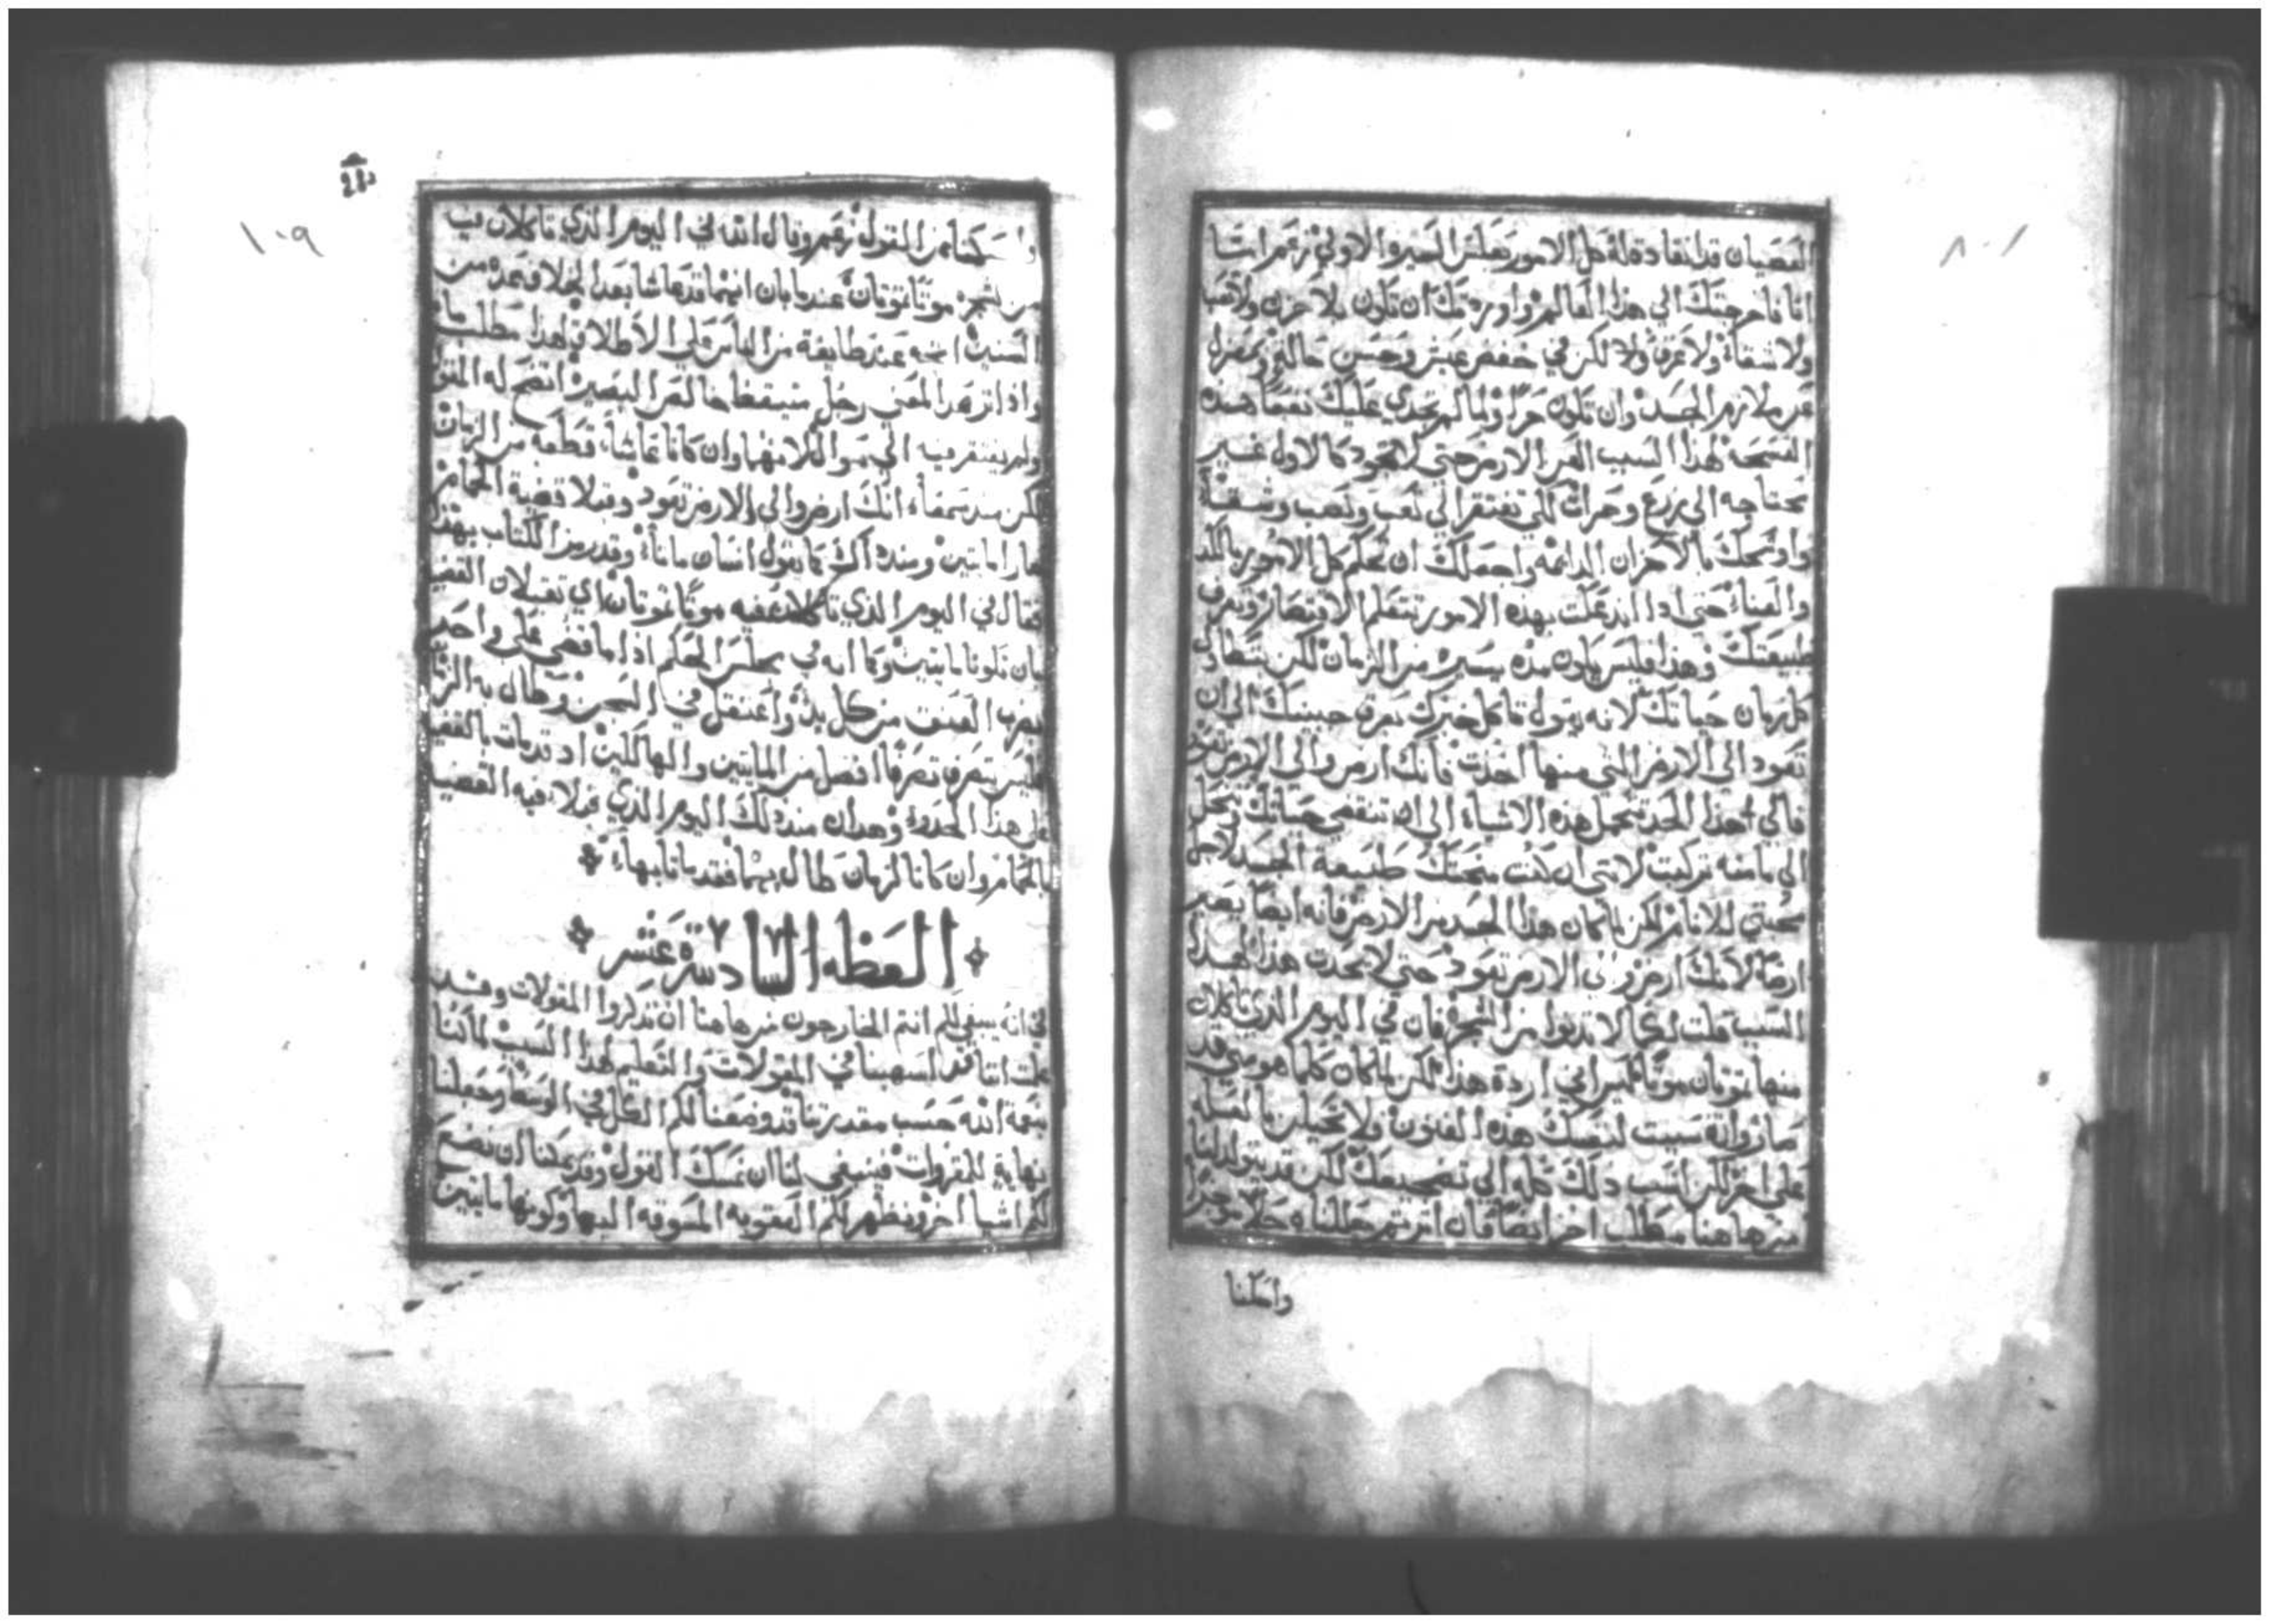 العصيان قد انقادة له كل الامور بعكس الصيرو الاولي زعم انسا
انا فاخرجتك الي هذا العالم واوردتك ان تكون بلا حزن ولا تعب
ولا شقاء ولا عرق ولا لكن في خفض عيش وحسن حاله وبمعزل
عن ملازم الجسد وان تكون حرا ولما لم يجدي عليك نفعا هذه
الفسحه لهذا السبب العن الارض حتى لا تجود كالاول غير
محتاجه الى زرع وحراث لكي تفتقر الي تعب ونصب وشقاء
بالاحزان الدايمه واجعلك ان تحكم كل الامور بالكد
والعناء حتى اذا بهذه الامور تتعلم وتعرف
طبيعتك وهذا فليس يكون مده يسيره من الزمان لكن
كل زمان حياتك لانه يقول تاكل خبزك بعرق جبينك الي ان
تعود الي الارض التي منها اخذت فانك ارض والي الارض تعود
فالي هذا الحد تحمل هذه الاشياء الي ان تنقضي حياتك وتحل
الي ما منه تركبت لانني ان كنت منحتك طبيعة الجسد لاجل
محبتي للانام لكن لما كان هذا الجسد من الارض فانه ايضا يصير
ارضا لانك ارض والى الارض تعود حتى لا يحدث هذا لهذا
السبب قلت لكما لا تدنوا من الشجره فان في اليوم الذي تاكلان
منها تموتان موتا هذا لكن لما كان كلما هو مني قد
صار وانة سببت لنفسك هذه الفنون ولا تحيلن بالعله
علي اخر لكن انسب ذلك كله الى تضجيعك لكن قد يتولد لنا
من هاهنا مطلب اخر ايضا فان اثرتم حللناه حلا موجزا
وامسكنا
١٠٨
١٠٩
وامسكنا عن القول زعم وقال الله في اليوم الذي تاكلان فيه
من الشجره موتا تموتان عندما بان انهما قد عاشا بعد الخلاف عده من
السنين عند طايفة من الناس علي الاطلاق هذا مطلب ما
واذا اثر هذا المعني رجل متيقظا البصيره اتضح له المقول
ولم يفتقر فيه الي وان كانا عاشا قطعة من الزمان
لكن منذ سمعاء انك ارض والي الارض تعود وقبلا قضية الحمام
صارا مايتين ومنذ اك كما يقول انسان ماتاء وقد رمز الكتاب بهذا
فقال في اليوم الذي تاكلان فيه موتا تموتان اي تقبلان القضيه
بان تكونا مايتين وكما انه في مجلس الحكم اذا ما قضي علي واحد
بضرب العنق من كل بد واعتقل في السجن وطال به الزمان
فليس يتصرف تصرفا افضل من المايتين والهالكين اذ قد مات بالقضيه
علي هذا الحدو وهدان منذ ذلك اليوم الذي فيه القضيه
بالحمام وان كانا الزمان طال بهما فقد ماتا بها
العظه السادسة عشر
انه ينبغي لكم انتم الخارجون من هاهنا ان تذكروا المقولات وقد
علمت اننا قد اسهبنا في المقولات والتعليم لهذا السبب لما كنا
بنعمة الله حسب مقدرتنا قد وضعنا لكم الكل في الوسط وجعلنا
نهاية للمقروات فينبغي لنا ان نمسك القول وقد يمكنا ان نضع
لكم اشيا اخر ونظهر لكم العقوبه المسوقه اليهما وكونهما مايتين